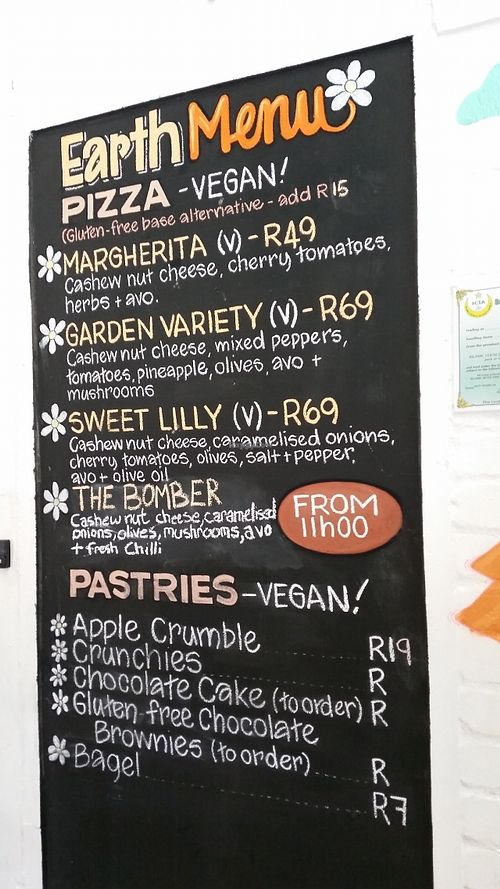 Earth Menu
PIZZA - VEGAN!
(Gluten-free base alternative - add R15
MARGHERITA (V) - R49
Cashew nut cheese, cherry tomatoes,
herbs + avo.
GARDEN VARIETY (V) - R69
Cashew nut cheese, mixed peppers,
tomatoes, pineapple, olives, avo +
mushrooms
SWEET LILLY (V) - R69
Cashew nut cheese, caramelised onions,
cherry tomatoes, olives, salt + pepper,
avo + olive oil
THE BOMBER
Cashew nut cheese, caramelised
onions, olives, mushrooms, avo
+ fresh Chilli
FROM
11h00
PASTRIES - VEGAN!
Apple Crumble R19
Crunchies R
Chocolate Cake (to order) R
Gluten-free Chocolate
Brownies (to order) R
Bagel R7